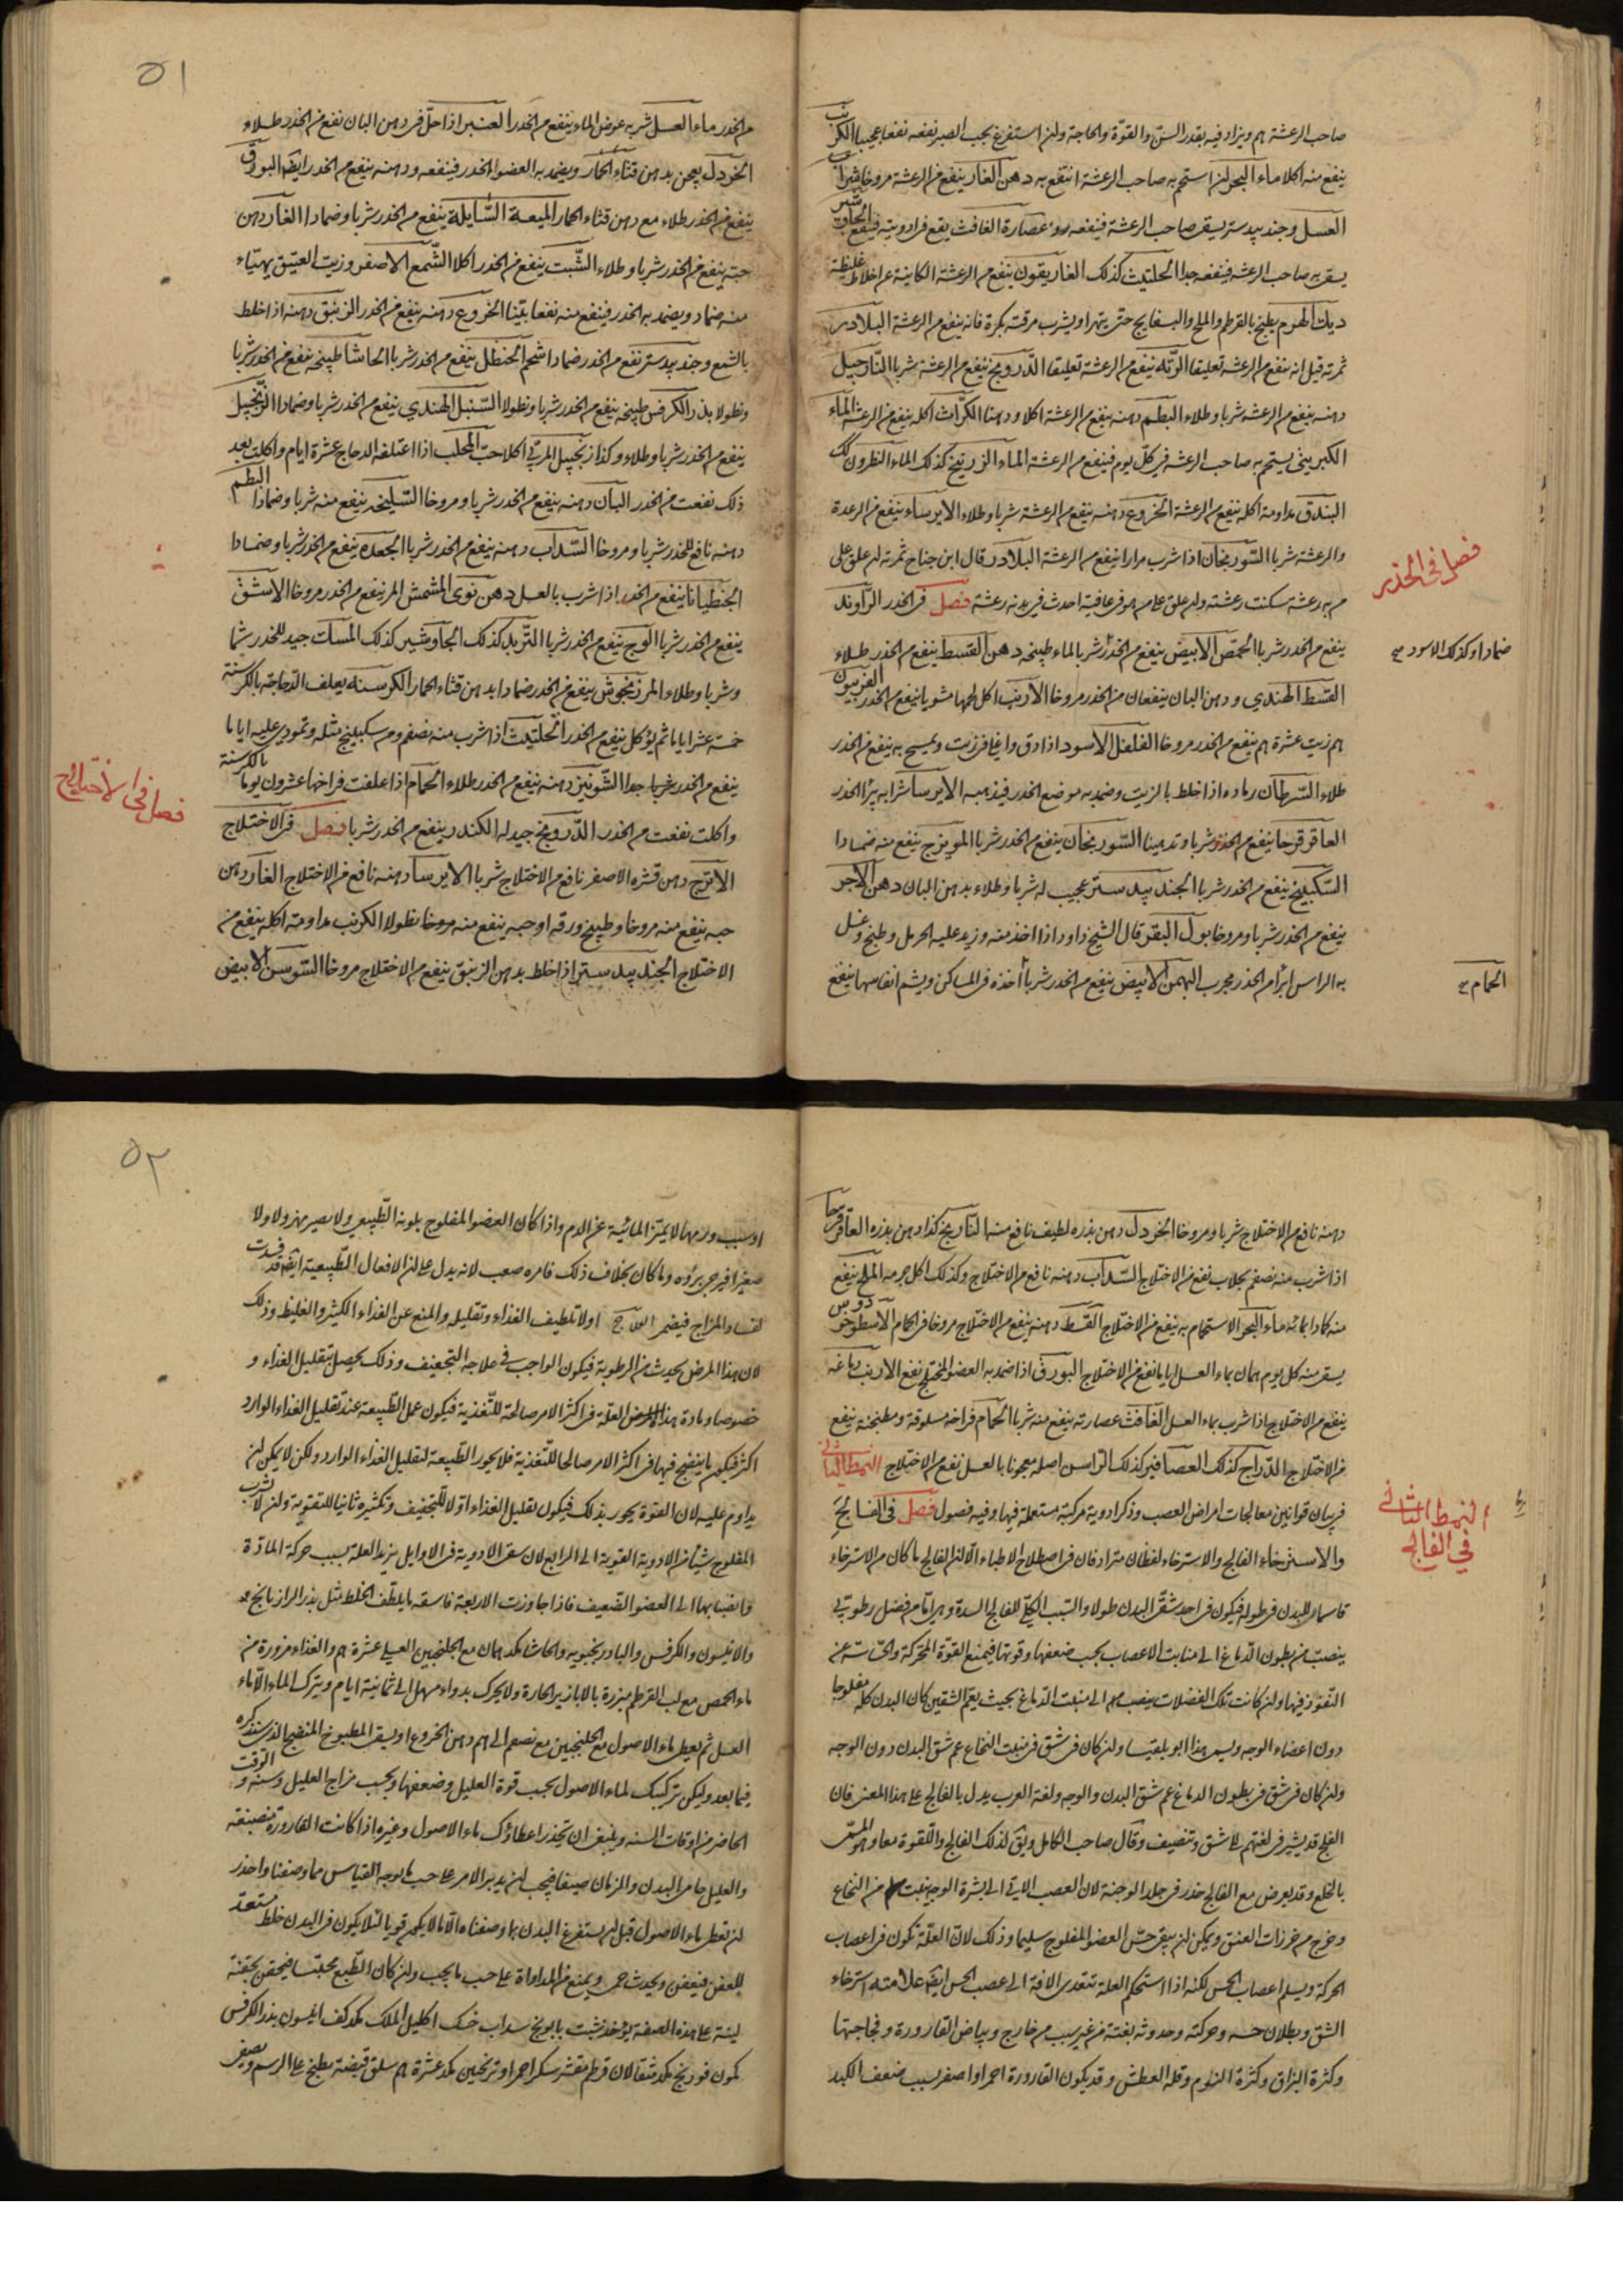 صاحب الرعشة هم ويزاد فيه بقدر السن والقوة والحاجة ولن استفرغ بحب الصبر نفعه نفعا عجيبا الكرنب
ينفع منه اكلا ماء البحر لن استحم به صاحب الرعشة انتفع به دهن الغار ينفع من الرعشة مروخا شراب
العسل وجندبيدستر يسقى صاحب الرعشة فينفعه عصارة الغافث يقع في ادويته فينفع الجاوشير
يسقى به صاحب الرعشة فينفعه جدا الحلتيت كذلك الغاريقون ينفع من الرعشة الكاينة عن اخلاط غليظة
ديك الهرم يطبخ بالقرطم والملح والبسفايج حتى يتهرا ويشرب مرقته بكرة فانه ينفع من الرعشة البلادر
ثمرته قيل انه ينفع من الرعشة تعليقا الرتة ينفع من الرعشة تعليقا الدرونج ينفع من الرعشة شربا النارجيل
دهنه ينفع من الرعشة شربا وطلاء البطم دهنه ينفع من الرعشة اكلا ودهنا الكراث اكله ينفع من الرعشة الماء
الكبريتي يستحم به صاحب الرعشة في كل يوم فينفع من الرعشة الماء الزرنيخ كذلك الماء النطرون كك
البندق مداومة اكله ينفع من الرعشة الخروع دهنه ينفع من الرعشة شربا وطلاء الايرساء ينفع من الرعدة
والرعشة شربا السورنجان اذا شرب مرارا ينفع من الرعشة البلادر قال ابن جناح ثمرته لن علق على
من به رعشة سكنت رعشته ولن علق على من هو في عافية احدث في بدنه رعشة فصل في الخدر الراوند
ينفع من الخدر شربا الحمص الابيض ينفع من الخدر شربا لماء طبيخه دهن القسط ينفع من الخدر طلاء
القسط الهندي ودهن البان ينفعان من الخدر مروخا الارنب اكل لحمها مشويا ينفع من الخدر الفربيون
هم زيت عشرة هم ينفع من الخدر مروخا الفلفل الاسود اذا دق واغلي في زيت ويمسح به ينفع من الخدر
طلاء السرطان رماده اذا خلط بالزيت وضمد به موضع الخدر فيذهبه الايرسا شرابه يبرا الخدر
العاقرقرحا ينفع من الخدر شربا وتدهينا السورنجان ينفع من الخدر شربا المويزج ينفع منه ضمادا
السكبينج ينفع من الخدر شربا الجندبيدستر عجيب له شربا وطلاء بدهن البان دهن الاجر
ينفع من الخدر شربا ومروخا بول البقر قال الشيخ داود اذا اخذ منه وزيد عليه الحرمل وطبخ وغسل
به الراس ابرا من الخدر مجرب البهمن الابيض ينفع من الخدر شربا أخذه في المساكن ويشم انفاسها ينفع
فصل في الخدر
ضمادا وكذلك الاسود صح
الحمام صح
٥١
من الخدر ماء العسل شربه عوض الماء ينفع من الخدر العنبر اذا حل في دهن البان نفع من الخدر طلاء
الخردل يعجن بدهن قثاء الحمار ويضمد به العضو الخدر فينفعه ودهنه ينفع من الخدر ايضا البورق
ينفع من الخدر طلاء مع دهن قثاء الحمار الميعة السايلة ينفع من الخدر شربا وضمادا الغار دهن
حبه ينفع من الخدر شربا وطلاء الشبت ينفع من الخدر اكلا الشمع الاصفر وزيت العتيق يهيّاء
منه ضماد ويضمد به الخدر فينفع منه نفعا بيّنا الخروع دهنه ينفع من الخدر الزنبق دهنه اذا خلط
بالشمع وجندبيدستر نفع من الخدر ضمادا شحم الحنظل ينفع من الخدر شربا الحاشا طبيخه ينفع من الخدر شربا
ونطولا بذر الكرفس طبيخه ينفع من الخدر شربا ونطولا السنبل الهندي ينفع من الخدر شربا وضمادا الزنجبيل
ينفع من الخدر شربا وطلاء وكذا زنجبيل المربى اكلا حب المحلب اذا اعتلفه الدجاج عشرة ايام واكلت بعد
ذلك نفعت من الخدر البان دهنه ينفع من الخدر شربا ومروخا السليخه ينفع منه شربا وضمادا البطم
دهنه نافع للخدر شربا ومروخا السداب دهنه ينفع من الخدر شربا الجعده ينفع من الخدر شربا وضمادا
الجنطيانا ينفع من الخدر اذا شرب بالعسل دهن نوى المشمش المر ينفع من الخدر مروخا الاشق
ينفع من الخدر شربا الوج ينفع من الخدر شربا التربد كذلك الجاوشير كذلك المسك جيد للخدر شما
وشربا وطلاء المرزنجوش ينفع من الخدر ضمادا بدهن قثاء الحمار الكرسنة يعلف الدجاجة بالكرسنة
خمسة عشر ايام ثم يؤكل ينفع من الخدر الحلتيت اذا شرب منه نصفهم ومن سكبينج مثله وتمودي عليه اياما
ينفع من الخدر شربا جدا الشونيز دهنه ينفع من الخدر طلاء الحمام اذا علفت فراخها عشرون يوما بالكرسنة
واكلت نفعت من الخدر الدرونج جيد له الكندر ينفع من الخدر شربا فصل في الاختلاج
الاترج دهن قشره الاصفر نافع من الاختلاج شربا الايرسا دهنه نافع من الاختلاج الغار دهن
حبه ينفع منه مروخا وطبيخ ورقه او حبه ينفع منه مروخا نطولا الكرنب مداومة اكله ينفع من
الاختلاج الجندبيدستر اذا خلط بدهن الزنبق ينفع من الاختلاج مروخا السوسن الابيض
فصل في الاختلاج
دهنه نافع من الاختلاج شربا ومروخا الخردل دهن بذره لطيف نافع منه النارنج كذا دهن بذره العاقرقرحا
اذا شرب منه نصفهم بجلاب نفع من الاختلاج السداب دهنه نافع من الاختلاج وكذلك اكل جرمه الملح ينفع
منه كمادا بمائه ماء البحر الاستحمام به ينفع من الاختلاج القسط دهنه ينفع من الاختلاج مروخا في الحمام الاسطوخودوس
يسقى منه كل يوم همان بماء العسل اياما نفع من الاختلاج البورق اذا ضمد به العضو المختلج نفع الارنب دماغه
ينفع من الاختلاج اذا شرب بماء العسل الغافث عصارته ينفع منه شربا الحمام فراخه مسلوقة ومطبخة ينفع
من الاختلاج الدراج كذلك العصافير كذلك الراسن اصله معجونا بالعسل نفع من الاختلاج النمط الثاني
في بيان قوانين معالجات امراض العصب وذكر ادوية مركبة مستعملة فيها وفيه فصول فصل في الفالج
والاسترخاء الفالج والاسترخاء لفظان مترادفان في اصطلاح الاطباء الا لن الفالج ما كان من الاسترخاء
قاسما للبدن في طوله فيكون في احد شقي البدن طولا والسبب الكلي للفالج السدة وهي اما من فضل رطوبي
ينصب من بطون الدماغ الى منابت الاعصاب بحسب ضعفها وقوتها فيمنع القوة المحركة والحساسة عن
النفوذ فيها ولن كانت تلك الفضلات ينصب الى منبت الدماغ بحيث يعم الشقين كان البدن كله مفلوجا
دون اعضاء الوجه ويسمى هذا ابو بلقيسا ولن كان في شق في منبت النخاع عم شق البدن دون الوجه
ولن كان في شق في بطون الدماغ عم شق البدن والوجه ولغة العرب يدل بالفالج على هذا المعنى فان
الفلج قد يشير في لغتهم الى شق وتنصيف وقال صاحب الكامل ويق لذلك الفالج واللقوة معا وهو المسمى
بالخلع وقد يعرض مع الفالج خدر في جلد الوجنة لان العصب الاتي الى بشرة الوجه ينبت من النخاع
وخرج من خرزات العنق ويمكن لن يبقى حس العضو المفلوج سليما وذلك لان العلة تكون في اعصاب
الحركة ويسلم اعصاب الحس لكنه اذا استحكم العلة تتعدى الافة الى عصب الحس ايضا علامته استرخاء
الشق وبطلان حسه وحركته وحدوثه بغتة من غير سبب من خارج وبياض القارورة وفجاجتها
وكثرة البزاق وكثرة النوم وقلة العطش وقد يكون القارورة احمر او اصفر لسبب ضعف الكبد
النمط الثاني
في الفالج
٥٢
او سبب ورمها لا يميز المائية عن الدم واذا كان العضو المفلوج بلونه الطبيعي ولا يصير مهزولا ولا
صغيرا فيرجى برؤه وما كان بخلاف ذلك فامره صعب لانه يدل على لن الافعال الطبيعية ايضا قد فسدت
لفساد المزاج فيضمر العلاج اولا تلطيف الغذاء وتقليله والمنع عن الغذاء الكثير والغليظ وذلك
لان هذا المرض يحدث من الرطوبة فيكون الواجب في علاجه التجفيف وذلك يحصل بتقليل الغذاء و
خصوصا ومادة هذا المرض العلة في اكثر الامر صالحة للتغذية فيكون عمل الطبيعة عند تقليل الغذاء الوارد
اكثر فيكون ما ينضج فيها في اكثر الامر صالحا للتغذية فلا يحور الطبيعة لتقليل الغذاء الوارد ولكن لا يمكن لن
يداوم عليه لان القوة يحور بذلك فيكون تقليل الغذاء اولا للتجفيف وتكثيره ثانيا للتقوية ولن لا يشرب
المفلوج شيأ من الادوية القوية الى الرابع لان سقى الادوية في الاوايل يزيد العلة بسبب حركة المادة
وانصبابها الى العضو الضعيف فاذا جاوزت الاربعة فاسقه ما يلطف الخلط مثل بذر الرازيانج
والانيسون والكرفس والبادرنجبويه والحاشا مكدهمان مع الجلنجبين العسلي عشرة هم والغذاء مزورة من
ماء الحمص مع لب القرطم مبزرة بالابازير الحارة ولا يحرك بدواء مسهل الى ثمانية ايام ويترك الماء الا ماء
العسل ثم يعطى ماء الاصول مع الجلنجبين مع نصفهم الى هم دهن الخروع او يسقى المطبوخ المنضج الذي سنذكره
فيما بعد وليكن تركيبك لماء الاصول بحسب قوة العليل وضعفها وبحسب مزاج العليل وسنه والوقت
الحاضر من اوقات السنة وينبغي ان تحذر اعطاؤك ماء الاصول وغيره اذا كانت القارورة منصبغة
والعليل حامى البدن والزمان صيفا فيجب لن يدبر الامر على حسب ما يوجبه القياس مما وصفنا واحذر
لن تعطى ماء الاصول قبل لن يستفرغ البدن بما وصفناه الا ما لا يكون قويا لئلا يكون في البدن خلط مستعد
للعفن فيعفن ويحدث حمى ويمنع من المداواة على حسب ما يجب ولن كان الطبع محتبسا فيحقن بحقنة
لينة على هذه الصفة يؤخذ شبت بابونج سداب خسك اكليل الملك مكد كف انيسون بذر الكرفس
كمون فودنج مكد مثقالان قرطم مقشر سكر احمر او ترنجبين مكد عشرة هم سلق قبضة يطبخ على الرسم ويصفى